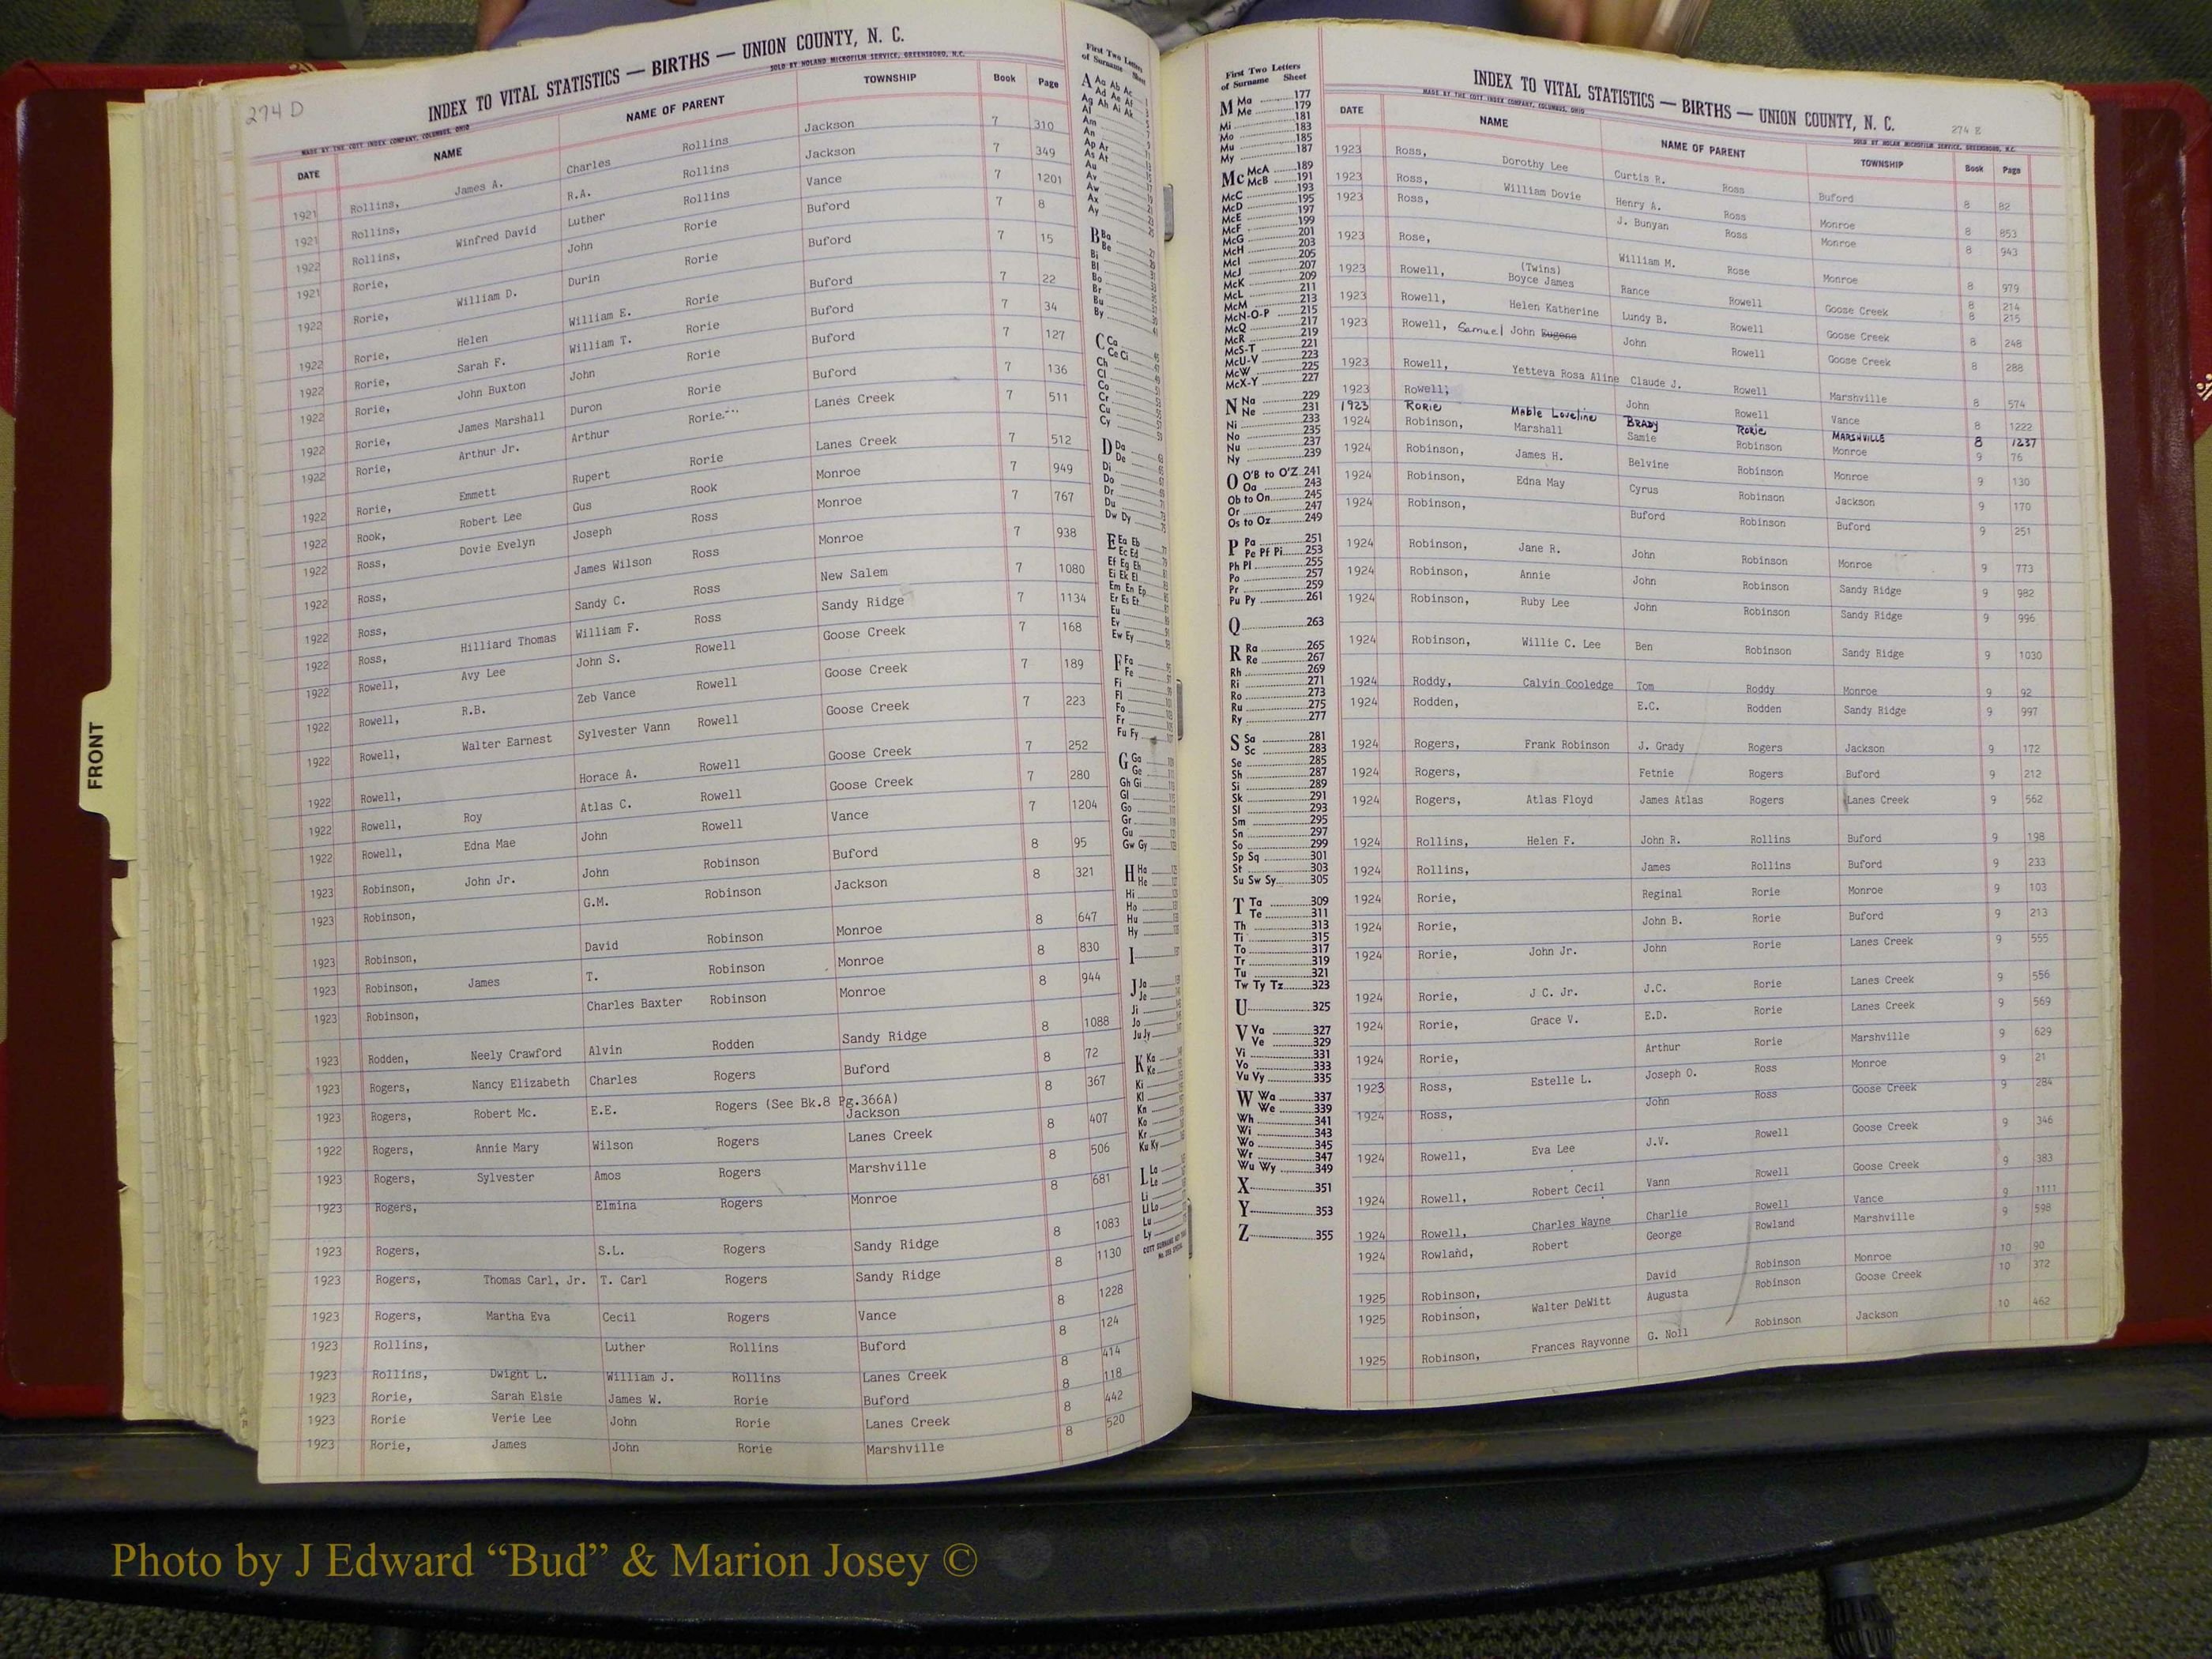 274 D
INDEX TO VITAL STATISTICS — BIRTHS — UNION COUNTY, N. C.
MADE BY THE COTT INDEX COMPANY, COLUMBUS, OHIO SOLD BY NOLAND MICROFILM SERVICE, GREENSBORO, N.C.
DATE NAME NAME OF PARENT TOWNSHIP Book Page
1921 Rollins, James A. Charles Rollins Jackson 7 310
1921 Rollins, R.A. Rollins Jackson 7 349
1922 Rollins, Winfred David Luther Rollins Vance 7 1201
1921 Rorie, John Rorie Buford 7 8
1922 Rorie, William D. Durin Rorie Buford 7 15
1922 Rorie, Helen William E. Rorie Buford 7 22
1922 Rorie, Sarah F. William T. Rorie Buford 7 34
1922 Rorie, John Buxton John Rorie Buford 7 127
1922 Rorie, James Marshall Duron Rorie Buford 7 136
1922 Rorie, Arthur Jr. Arthur Rorie Lanes Creek 7 511
1922 Rorie, Emmett Rupert Rorie Lanes Creek 7 512
1922 Rook, Robert Lee Gus Rook Monroe 7 949
1922 Ross, Dovie Evelyn Joseph Ross Monroe 7 767
1922 Ross, James Wilson Ross Monroe 7 938
1922 Ross, Sandy C. Ross New Salem 7 1080
1922 Ross, Hilliard Thomas William F. Ross Sandy Ridge 7 1134
1922 Rowell, Avy Lee John S. Rowell Goose Creek 7 168
1922 Rowell, R.B. Zeb Vance Rowell Goose Creek 7 189
1922 Rowell, Walter Earnest Sylvester Vann Rowell Goose Creek 7 223
1922 Rowell, Horace A. Rowell Goose Creek 7 252
1922 Rowell, Roy Atlas C. Rowell Goose Creek 7 280
1922 Rowell, Edna Mae John Rowell Vance 7 1204
1923 Robinson, John Jr. John Robinson Buford 8 95
1923 Robinson, G.M. Robinson Jackson 8 321
1923 Robinson, David Robinson Monroe 8 647
1923 Robinson, James T. Robinson Monroe 8 830
1923 Robinson, Charles Baxter Robinson Monroe 8 944
1923 Rodden, Neely Crawford Alvin Rodden Sandy Ridge 8 1088
1923 Rogers, Nancy Elizabeth Charles Rogers Buford 8 72
1923 Rogers, Robert Mc. E.E. Rogers (See Bk.8 Pg.366A) Jackson 8 367
1922 Rogers, Annie Mary Wilson Rogers Lanes Creek 8 407
1923 Rogers, Sylvester Amos Rogers Marshville 8 506
1923 Rogers, Elmina Rogers Monroe 8 681
1923 Rogers, S.L. Rogers Sandy Ridge 8 1083
1923 Rogers, Thomas Carl, Jr. T. Carl Rogers Sandy Ridge 8 1130
1923 Rogers, Martha Eva Cecil Rogers Vance 8 1228
1923 Rollins, Luther Rollins Buford 8 124
1923 Rollins, Dwight L. William J. Rollins Lanes Creek 8 414
1923 Rorie, Sarah Elsie James W. Rorie Buford 8 118
1923 Rorie Verie Lee John Rorie Lanes Creek 8 442
1923 Rorie, James John Rorie Marshville 8 520
First Two Letters
of Surname Sheet
A Aa Ab Ac
Ad Ae Af
Ag Ah Ai Ak
Al
Am
An
Ap Ar
As At
Au
Av
Aw
Ax
Ay
B Ba
Be
Bi
Bl
Bo
Br
Bu
By
C Ca
Ce Ci
Ch
Cl
Co
Cr
Cu
Cy
D Da
De
Di
Do
Dr
Du
Dw Dy
E Ea Eb
Ec Ed
Ef Eg Eh
Ei Ek El
Em En Ep
Er Es Et
Eu
Ev
Ew Ey
F Fa
Fe
Fi
Fl
Fo
Fr
Fu Fy
G Ga
Ge
Gh Gi
Gl
Go
Gr
Gu
Gw Gy
H Ha
He
Hi
Ho
Hu
Hy
I
J Ja
Je
Ji
Jo
Ju Jy
K Ka
Ke
Ki
Kl
Kn
Ko
Kr
Ku Ky
L La
Le
Li
Ll Lo
Lu
Ly
First Two Letters
of Surname Sheet
M Ma 177
Me 179
Mi 181
Mo 183
Mu 185
My 187
Mc McA 189
McB 191
McC 193
McD 195
McE 197
McF 199
McG 201
McH 203
McI 205
McJ 207
McK 209
McL 211
McM 213
McN-O-P 215
McQ 217
McR 219
McS-T 221
McU-V 223
McW 225
McX-Y 227
N Na 229
Ne 231
Ni 233
No 235
Nu 237
Ny 239
O O'B to O'Z 241
Oa 243
Ob to On 245
Or 247
Os to Oz 249
P Pa 251
Pe Pf Pi 253
Ph Pl 255
Po 257
Pr 259
Pu Py 261
Q 263
R Ra 265
Re 267
Rh 269
Ri 271
Ro 273
Ru 275
Ry 277
S Sa 281
Sc 283
Se 285
Sh 287
Si 289
Sk 291
Sl 293
Sm 295
Sn 297
So 299
Sp Sq 301
St 303
Su Sw Sy 305
T Ta 309
Te 311
Th 313
Ti 315
To 317
Tr 319
Tu 321
Tw Ty Tz 323
U 325
V Va 327
Ve 329
Vi 331
Vo 333
Vu Vy 335
W Wa 337
We 339
Wh 341
Wi 343
Wo 345
Wr 347
Wu Wy 349
X 351
Y 353
Z 355
INDEX TO VITAL STATISTICS — BIRTHS — UNION COUNTY, N. C.
274 E
MADE BY THE COTT INDEX COMPANY, COLUMBUS, OHIO SOLD BY NOLAN MICROFILM SERVICE, GREENSBORO, N.C.
DATE NAME NAME OF PARENT TOWNSHIP Book Page
1923 Ross, Dorothy Lee Curtis R. Ross Buford 8 82
1923 Ross, William Dovie Henry A. Ross Monroe 8 853
1923 Ross, J. Bunyan Ross Monroe 8 943
1923 Rose, William M. Rose Monroe 8 979
1923 Rowell, (Twins) Boyce James Rance Rowell Goose Creek 8 214 8 215
1923 Rowell, Helen Katherine Lundy B. Rowell Goose Creek 8 248
1923 Rowell, Samuel John Eugene John Rowell Goose Creek 8 288
1923 Rowell, Yetteva Rosa Aline Claude J. Rowell Marshville 8 574
1923 Rowell, John Rowell Vance 8 1222
1923 RORIE Mable Loveline BRADY RORIE MARSHVILLE 8 1237
1924 Robinson, Marshall Samie Robinson Monroe 9 76
1924 Robinson, James H. Belvine Robinson Monroe 9 130
1924 Robinson, Edna May Cyrus Robinson Jackson 9 170
1924 Robinson, Buford Robinson Buford 9 251
1924 Robinson, Jane R. John Robinson Monroe 9 773
1924 Robinson, Annie John Robinson Sandy Ridge 9 982
1924 Robinson, Ruby Lee John Robinson Sandy Ridge 9 996
1924 Robinson, Willie C. Lee Ben Robinson Sandy Ridge 9 1030
1924 Roddy, Calvin Cooledge Tom Roddy Monroe 9 92
1924 Rodden, E.C. Rodden Sandy Ridge 9 997
1924 Rogers, Frank Robinson J. Grady Rogers Jackson 9 172
1924 Rogers, Fetnie Rogers Buford 9 212
1924 Rogers, Atlas Floyd James Atlas Rogers Lanes Creek 9 562
1924 Rollins, Helen F. John R. Rollins Buford 9 198
1924 Rollins, James Rollins Buford 9 233
1924 Rorie, Reginal Rorie Monroe 9 103
1924 Rorie, John B. Rorie Buford 9 213
1924 Rorie, John Jr. John Rorie Lanes Creek 9 555
1924 Rorie, J C. Jr. J.C. Rorie Lanes Creek 9 556
1924 Rorie, Grace V. E.D. Rorie Lanes Creek 9 569
1924 Rorie, Arthur Rorie Marshville 9 629
1923 Ross, Estelle L. Joseph O. Ross Monroe 9 21
1924 Ross, John Ross Goose Creek 9 284
1924 Rowell, Eva Lee J.V. Rowell Goose Creek 9 346
1924 Rowell, Robert Cecil Vann Rowell Goose Creek 9 383
1924 Rowell, Charles Wayne Charlie Rowell Vance 9 1111
1924 Rowland, Robert George Rowland Marshville 9 598
1925 Robinson, David Robinson Monroe 10 90
1925 Robinson, Walter DeWitt Augusta Robinson Goose Creek 10 372
1925 Robinson, Frances Rayvonne G. Noll Robinson Jackson 10 462
FRONT
Photo by J Edward “Bud” & Marion Josey ©